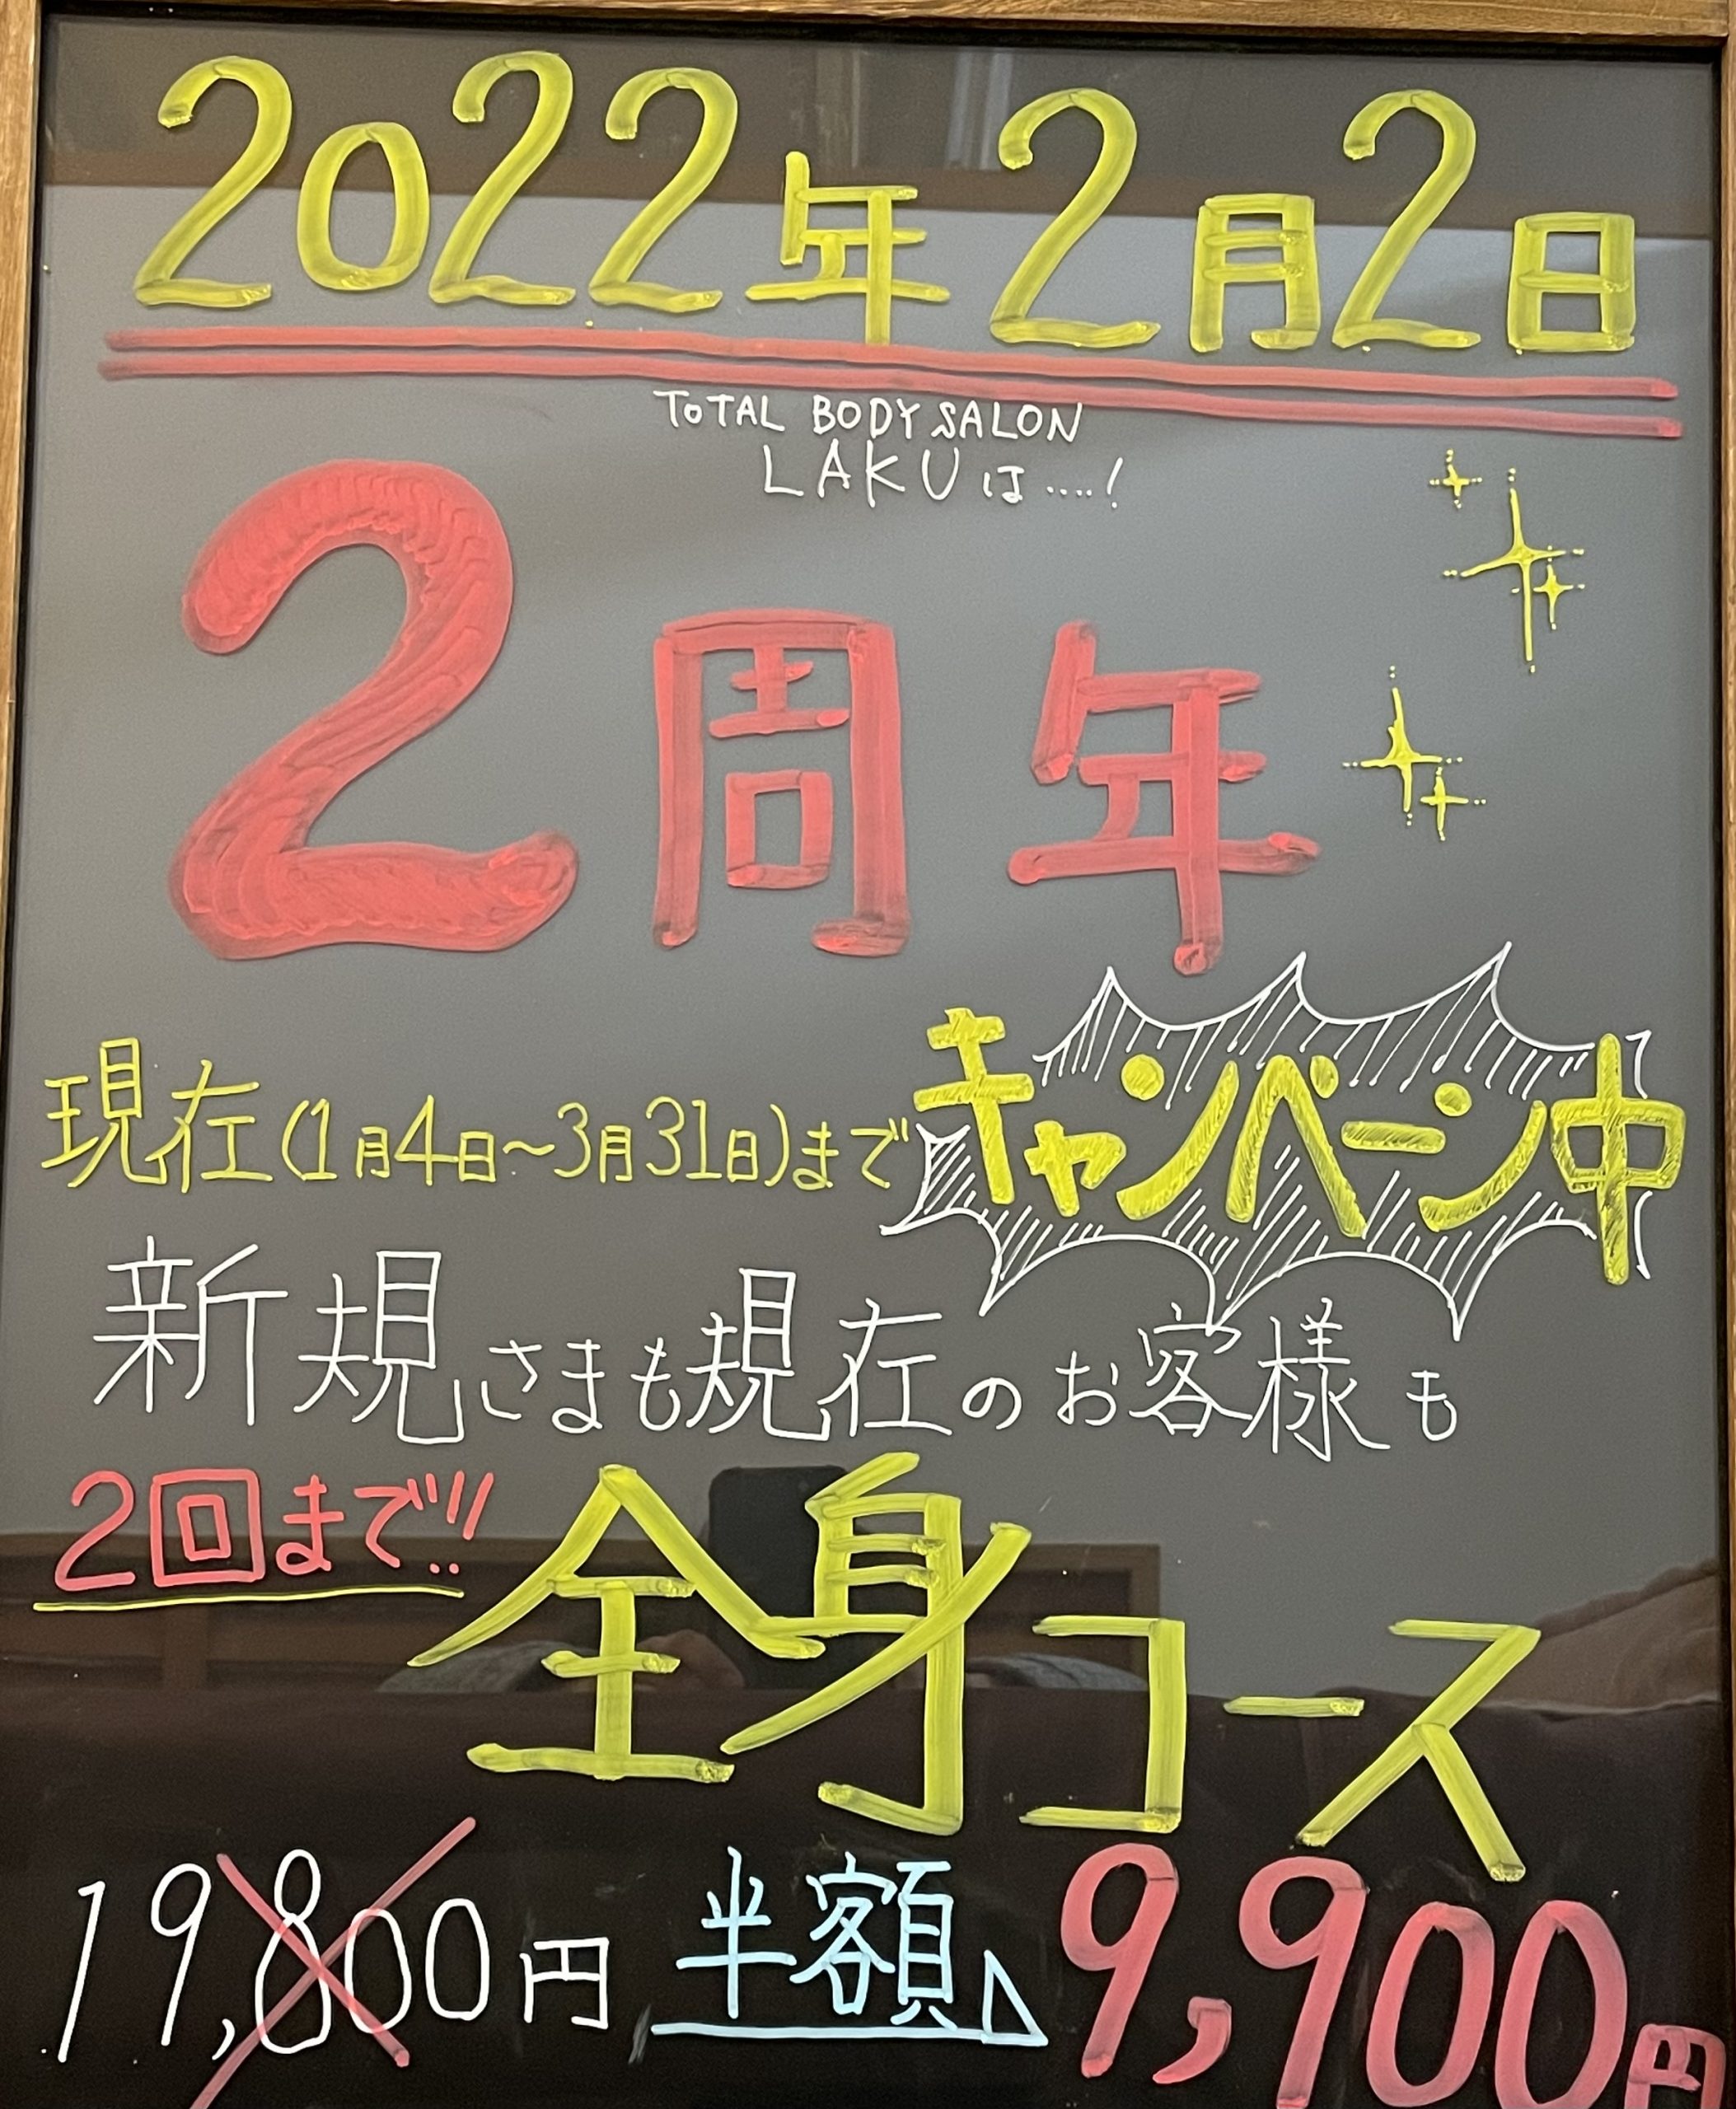 2022年2月2日
TOTAL BODY SALON
LAKUは....!
2周年
現在(1月4日~3月31日)まで キャンペーン中
新規さまも規在のお客様も
2回まで!! 全身コース
19,800円 半額 9,900円